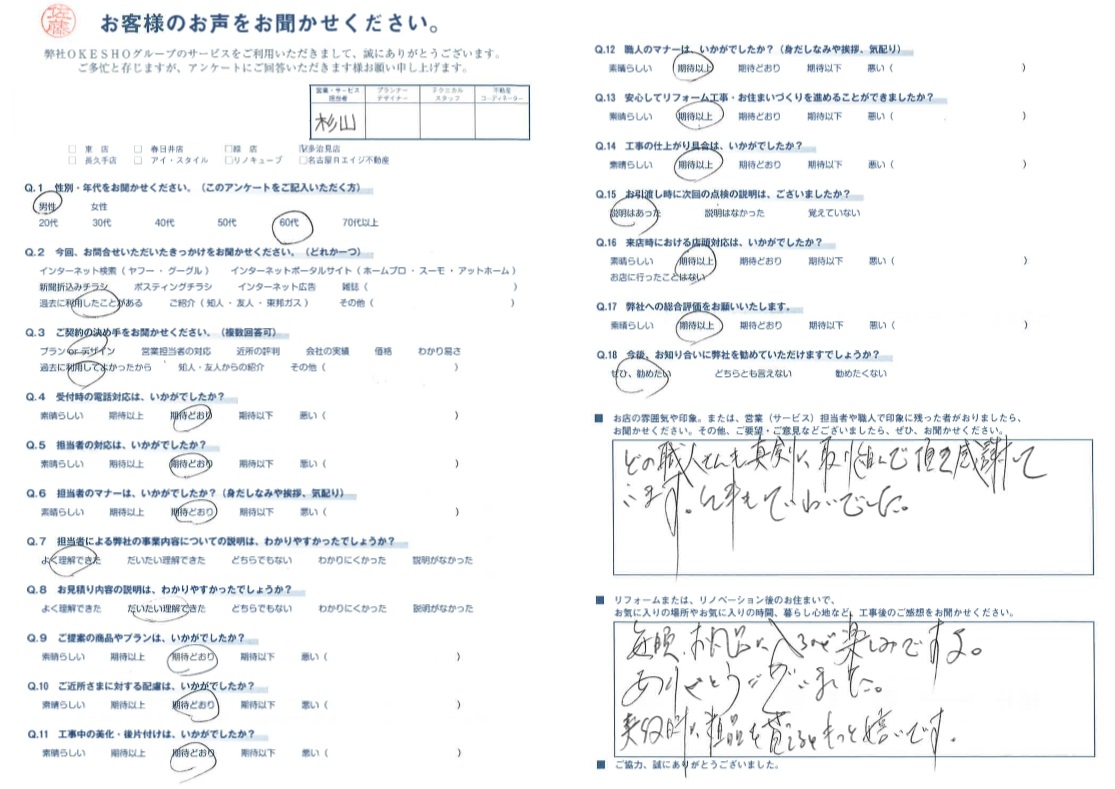 佐藤
お客様のお声をお聞かせください。
弊社OKESHOグループのサービスをご利用いただきまして、誠にありがとうございます。
ご多忙と存じますが、アンケートにご回答いただきます様お願い申し上げます。
営業・サービス担当者 プランナーデザイナー テクニカルスタッフ 不動産コーディネーター
杉山
□ 東 店 □ 春日井店 □緑 店 ☑多治見店
□ 長久手店 □ アイ・スタイル □リノキューブ □名古屋Rエイジ不動産
Q.1 性別・年代をお聞かせください。（このアンケートをご記入いただく方）
男性 女性
20代 30代 40代 50代 60代 70代以上
Q.2 今回、お問合せいただいたきっかけをお聞かせください。（どれか一つ）
インターネット検索（ ヤフー ・ グーグル ） インターネットポータルサイト（ ホームプロ ・ スーモ ・ アットホーム ）
新聞折込みチラシ ポスティングチラシ インターネット広告 雑誌（ ）
過去に利用したことがある ご紹介（ 知人 ・ 友人 ・ 東邦ガス ） その他（ ）
Q.3 ご契約の決め手をお聞かせください。（複数回答可）
プラン or デザイン 営業担当者の対応 近所の評判 会社の実績 価格 わかり易さ
過去に利用してよかったから 知人・友人からの紹介 その他（ ）
Q.4 受付時の電話対応は、いかがでしたか？
素晴らしい 期待以上 期待どおり 期待以下 悪い（ ）
Q.5 担当者の対応は、いかがでしたか？
素晴らしい 期待以上 期待どおり 期待以下 悪い（ ）
Q.6 担当者のマナーは、いかがでしたか？（身だしなみや挨拶、気配り）
素晴らしい 期待以上 期待どおり 期待以下 悪い（ ）
Q.7 担当者による弊社の事業内容についての説明は、わかりやすかったでしょうか？
よく理解できた だいたい理解できた どちらでもない わかりにくかった 説明がなかった
Q.8 お見積り内容の説明は、わかりやすかったでしょうか？
よく理解できた だいたい理解できた どちらでもない わかりにくかった 説明がなかった
Q.9 ご提案の商品やプランは、いかがでしたか？
素晴らしい 期待以上 期待どおり 期待以下 悪い（ ）
Q.10 ご近所さまに対する配慮は、いかがでしたか？
素晴らしい 期待以上 期待どおり 期待以下 悪い（ ）
Q.11 工事中の美化・後片付けは、いかがでしたか？
素晴らしい 期待以上 期待どおり 期待以下 悪い（ ）
Q.12 職人のマナーは、いかがでしたか？（身だしなみや挨拶、気配り）
素晴らしい 期待以上 期待どおり 期待以下 悪い（ ）
Q.13 安心してリフォーム工事・お住まいづくりを進めることができましたか？
素晴らしい 期待以上 期待どおり 期待以下 悪い（ ）
Q.14 工事の仕上がり具合は、いかがでしたか？
素晴らしい 期待以上 期待どおり 期待以下 悪い（ ）
Q.15 お引渡し時に次回の点検の説明は、ございましたか？
説明はあった 説明はなかった 覚えていない
Q.16 来店時における店頭対応は、いかがでしたか？
素晴らしい 期待以上 期待どおり 期待以下 悪い（ ）
お店に行ったことはない
Q.17 弊社への総合評価をお願いいたします。
素晴らしい 期待以上 期待どおり 期待以下 悪い（ ）
Q.18 今後、お知り合いに弊社を勧めていただけますでしょうか？
ぜひ、勧めたい どちらとも言えない 勧めたくない
■ お店の雰囲気や印象。または、営業（サービス）担当者や職人で印象に残った者がおりましたら、
お聞かせください。その他、ご要望・ご意見などございましたら、ぜひ、お聞かせください。
どの職人さんも真剣に、取り組んで頂き感謝して
います。仕事もていねいでした。
■ リフォームまたは、リノベーション後のお住まいで、
お気に入りの場所やお気に入りの時間、暮らし心地など、工事後のご感想をお聞かせください。
毎晩、お風呂に入るのが楽しみですよ。
ありがとうございました。
粗品を貰えるともっと嬉いです。
■ ご協力、誠にありがとうございました。